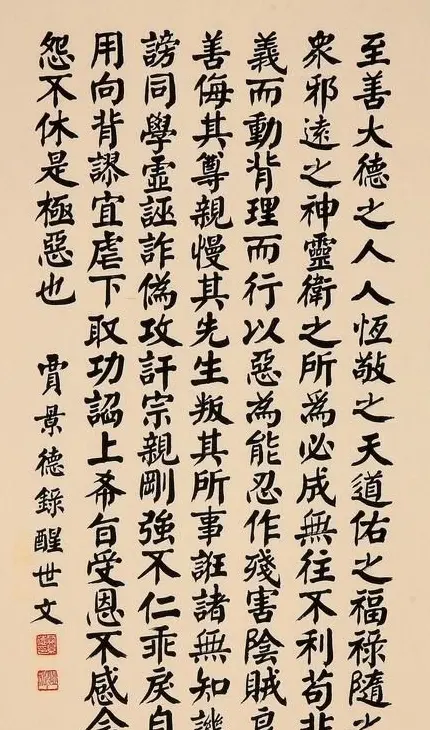 至善大德之人人恆敬之天道佑之福祿隨之
衆邪遠之神靈衛之所為必成無往不利苟非
義而動背理而行以惡為能忍作殘害陰賊良
善侮其尊親慢其先生叛其所事誑諸無知謗
謗同學虛誣詐偽攻訐宗親剛強不仁乖戾自
用向背謬宜虐下取功諂上希旨受恩不感念
怨不休是極惡也
賈景德錄醒世文